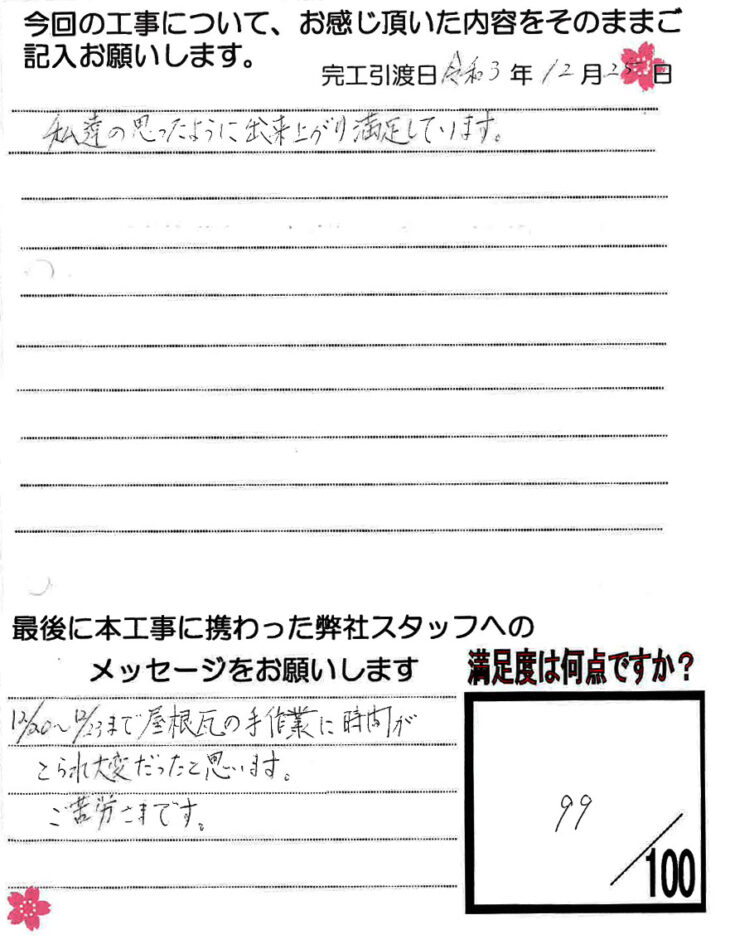 今回の工事について、お感じ頂いた内容をそのままご
記入お願いします。
完工引渡日 令和3年12月25日
私達の思ったように出来上がり満足しています。
最後に本工事に携わった弊社スタッフへの
メッセージをお願いします
満足度は何点ですか?
12/20〜12/23まで屋根瓦の手作業に時間が
とられ大変だったと思います。
ご苦労さまです。
99/100